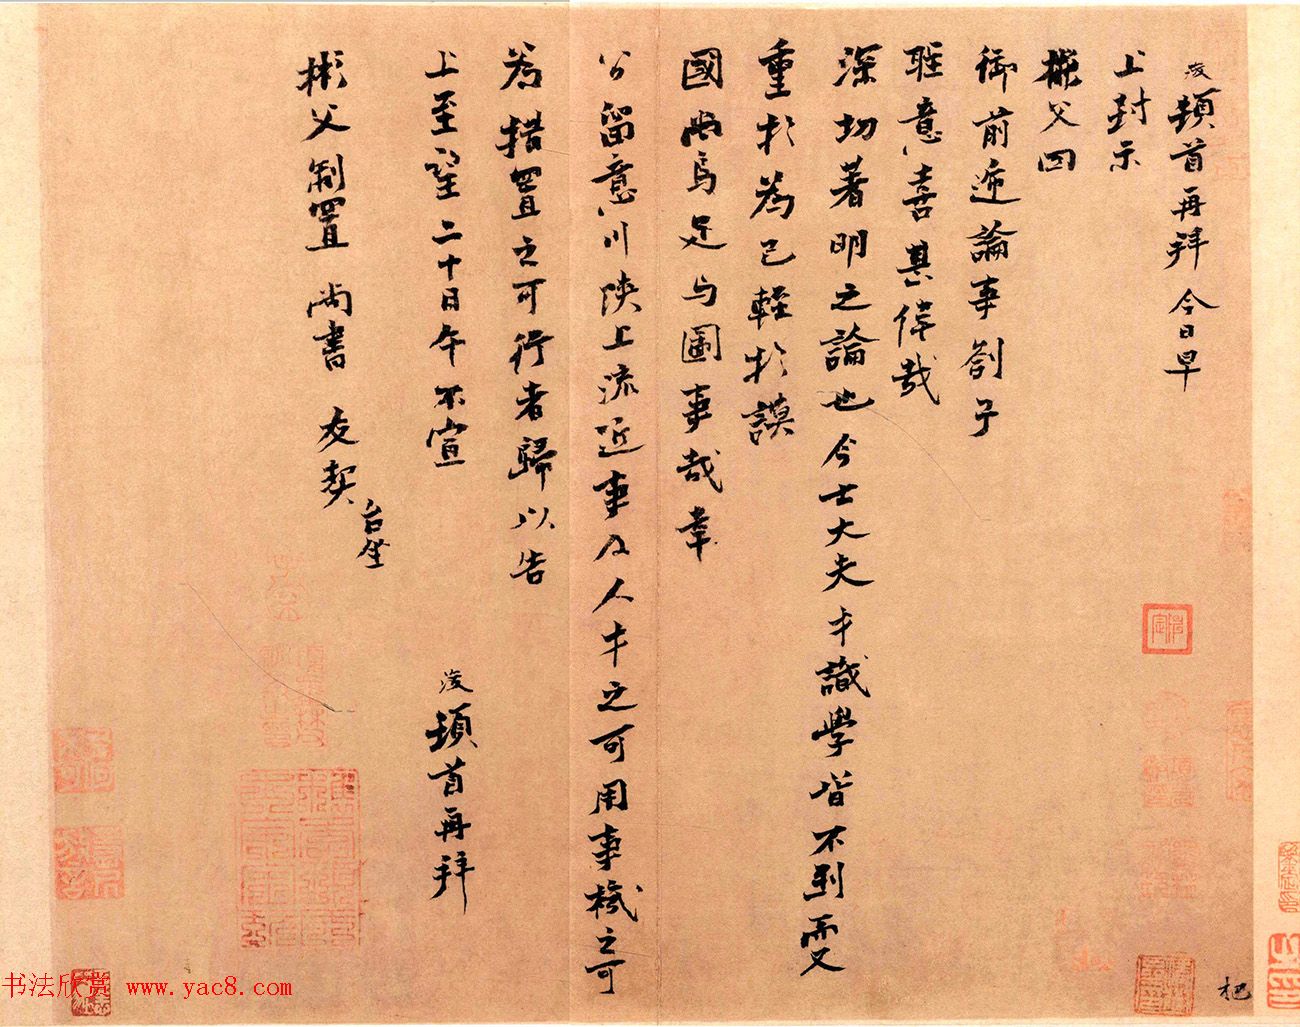 浚頓首再拜今日早
上封示
彬父回
御前遞論事劄子
聖意喜甚偉哉
深切著明之論也今士大夫才識學皆不到而又
重於為己輕於謀
國尚焉足與圖事哉幸
公留意川陝上流近事及人才之可用事機之可
為措置之可行者歸以告
上至望二十日午不宣
浚頓首再拜
彬父制置尚書友契台坐
杞
书法欣赏 www.yac8.com